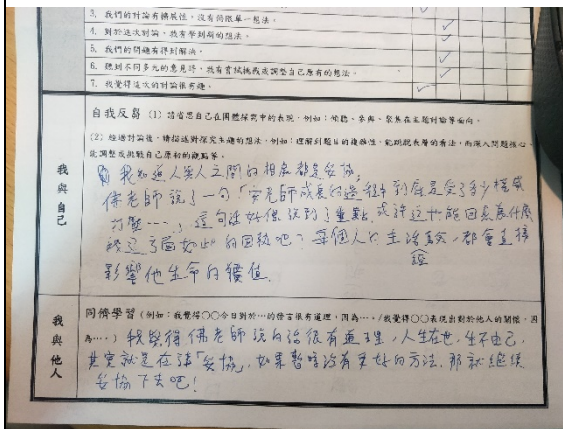 3. 我們的討論有擴展性，沒有侷限單一想法。
4. 對於這次討論，我有學到新的想法。
5. 我們的問題有得到解決。
6. 聽到不同多元的意見時，我有嘗試挑戰或調整自己原有的想法。
7. 我覺得這次的討論很有趣。
我與自己
自我反思（1）請省思自己在團體探究中的表現，例如：傾聽、參與、聚焦在主題討論等面向。
（2）經過討論後，請描述對探究主題的想法，例如：理解到題目的複雜性，能跳脫表層的看法，而深入問題核心，
能調整或挑戰自己原初的觀點等。
我知道人與人之間的相處都是妥協，
佛老師說了一句「安老師成長的過程中到底是受了多少模
打壓…」，這句話好像說到了重點，或許這也能回應為什麼
會如此的回頭吧？每個人的生活經驗，都會直接
影響他生命的價值。
我與他人
同儕學習（例如：我覺得○○今日對於…的發言很有道理，因為…。/我覺得○○表現出對於他人的關懷，因
為…。）我覺得佛老師說的話很有道理，人生在世，生不由己，
其實就是在講「妥協」，如果暫時沒有更好的方法，那就繼續
妥協下去吧！